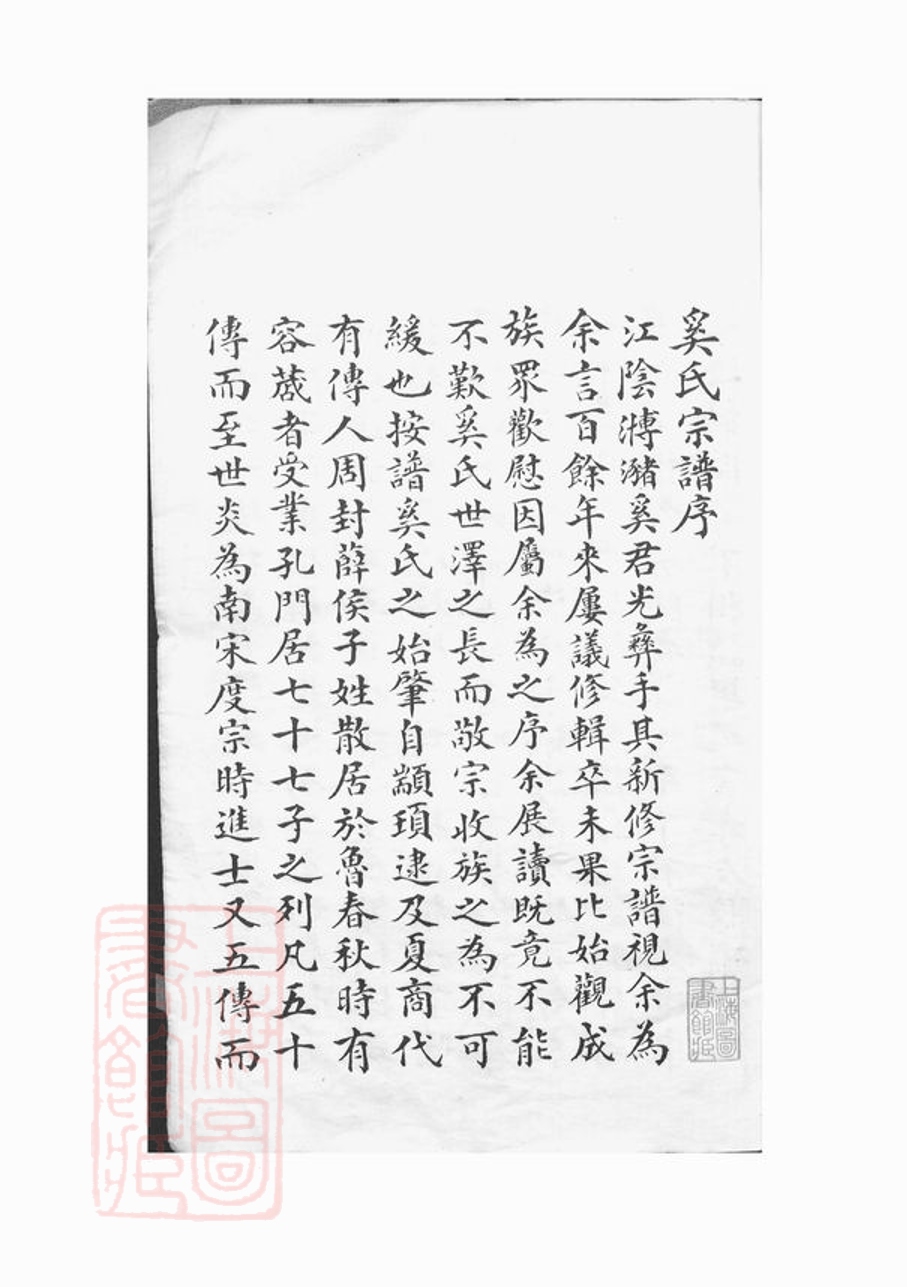 奚氏宗譜序
江陰溥瀦奚君光彝手其新修宗譜視余為
余言百餘年來屢議修輯卒未果比始觀成
族眾歡慰因屬余為之序余展讀既竟不能
不歎奚氏世澤之長而敬宗收族之為不可
緩也按譜奚氏之始肇自顓頊逮及夏商代
有傳人周封薛侯子姓散居於魯春秋時有
容蒧者受業孔門居七十七子之列凡五十
傳而至世炎為南宋度宗時進士又五傳而
上海圖書館藏
上海圖書館藏